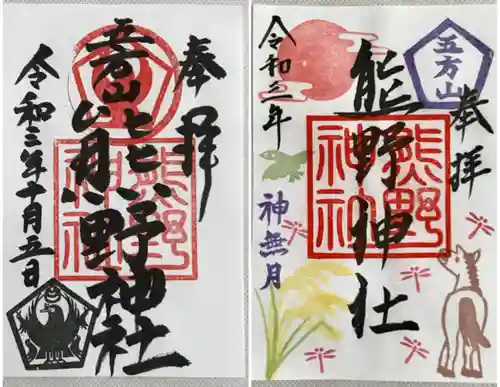 奉拝
五方山
熊野神社
熊野
神社
令和三年十月五日
五方山
奉拝
熊野神社
熊野
神社
令和三年
神無月